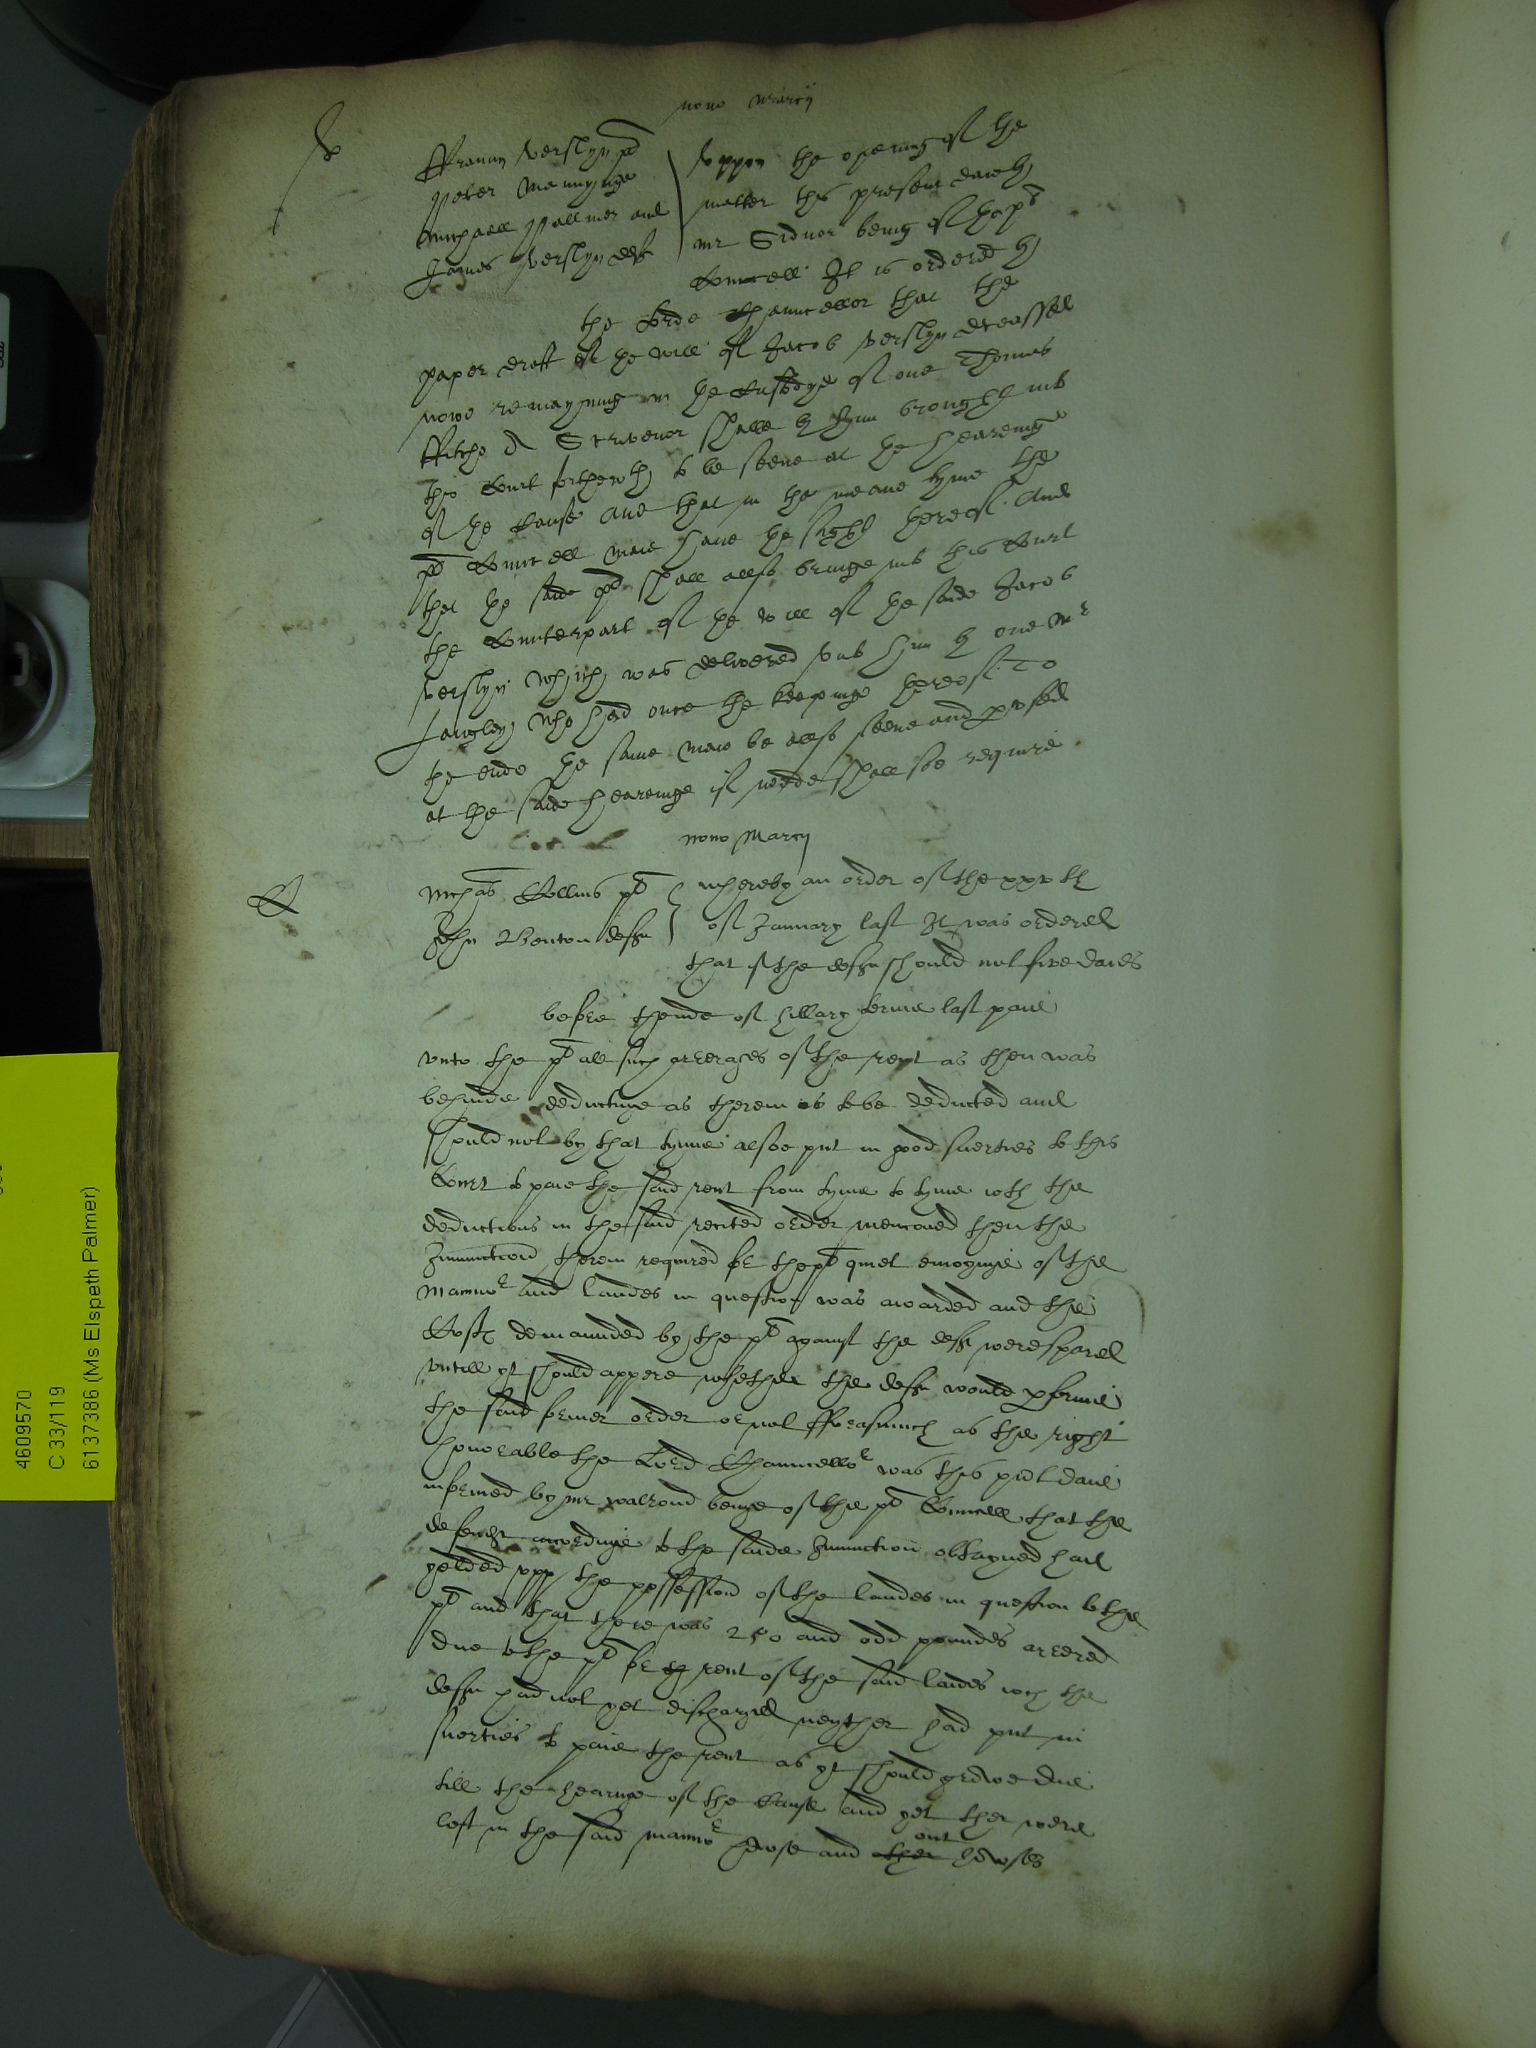 nono Marcij
ffrauncys Verslyn pl
Peter Mannynge
Michaell Pallmer and
James Verslyn def
Vppon the openinge of the
matter this present daie by
mr Sidnor being of the pl
Councell It is ordered by
the Lorde Chauncellor that the
paper draft of the will of Jacob Verslyn deceassed
nowe remayning in the custodye of one Thomas
ffitche a Scrivenor shalle by hym brought into
this Court forthewth to be seene at the hearinge
of the cause and that in the meane tyme the
pl Councell maie have the sight thereof. And
that the saide pl shall allso bringe into this Court
the Counterpart of the will of the saide Jacob
Verslyn which was delivered vnto him by one Mr
Langley who had once the keepinge thereof. To
the ende the same maie be allso seene and perused
at the saide hearinge if neede shall soe require
nono Marcij
Nichas Collins pl
John Benton defen
whereby an order of the xxvth
of January last It was ordered
that if the defen should not five daies
before thende of Hillary terme last paie
vnto the pl all such arrerages of the rent as then was
behinde deductinge as therein is to be deducted and
should not by that tyme alsoe put in good suerties to this
Court to paie the said rent from tyme to tyme wth the
deductions in the said recited order mencioned then the
Iniunction therein required for the pl quiet enioyinge of the
mannor and landes in question was awarded and the
Costes demaunded by the pl against the defen were spared
vntill yt should appere whether the defen would performe
the said former order or not fforasmuch as the right
honorable the Lord Chauncellor was this pnt daie
informed by mr walrond beinge of the pl Councell that the
defendt accordinge to the saide Iniunction obtayned had
yelded vpp the possession of the landes in question to the
pl and that there was 250 and odd poundes arrered
due to the pl for rent of the said landes wch the
defen had not yet discharged neyther had put in
suerties to paie the rent as yt should growe due
till the hearinge of the cause and yet ther were
left in the said mannor howse and out howses
4609570
C 33/119
6137386 (Ms Elspeth Palmer)